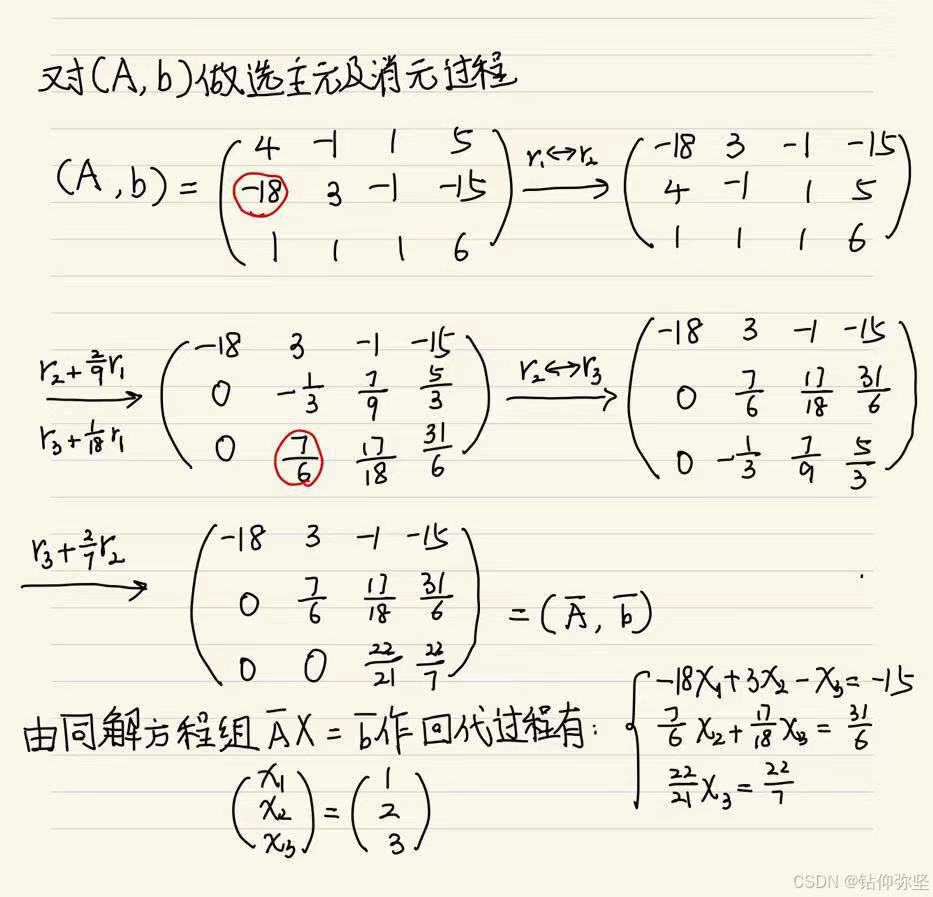 对(A,b)做选主元及消元过程
(A,b) = ( 4 -1 1 5 ; -18 3 -1 -15 ; 1 1 1 6 ) r₁↔r₂ → ( -18 3 -1 -15 ; 4 -1 1 5 ; 1 1 1 6 )
r₂+2/9r₁ r₃+1/18r₁ → ( -18 3 -1 -15 ; 0 -1/3 7/9 5/3 ; 0 7/6 17/18 31/6 ) r₂↔r₃ → ( -18 3 -1 -15 ; 0 7/6 17/18 31/6 ; 0 -1/3 7/9 5/3 )
r₃+2/7r₂ → ( -18 3 -1 -15 ; 0 7/6 17/18 31/6 ; 0 0 22/21 22/7 ) = (A̅, b̅)
由同解方程组 A̅X = b̅作回代过程有: { -18x₁+3x₂-x₃=-15 ; 7/6 x₂+17/18 x₃=31/6 ; 22/21 x₃=22/7
( x₁ ; x₂ ; x₃ ) = ( 1 ; 2 ; 3 )
CSDN @钻仰弥坚